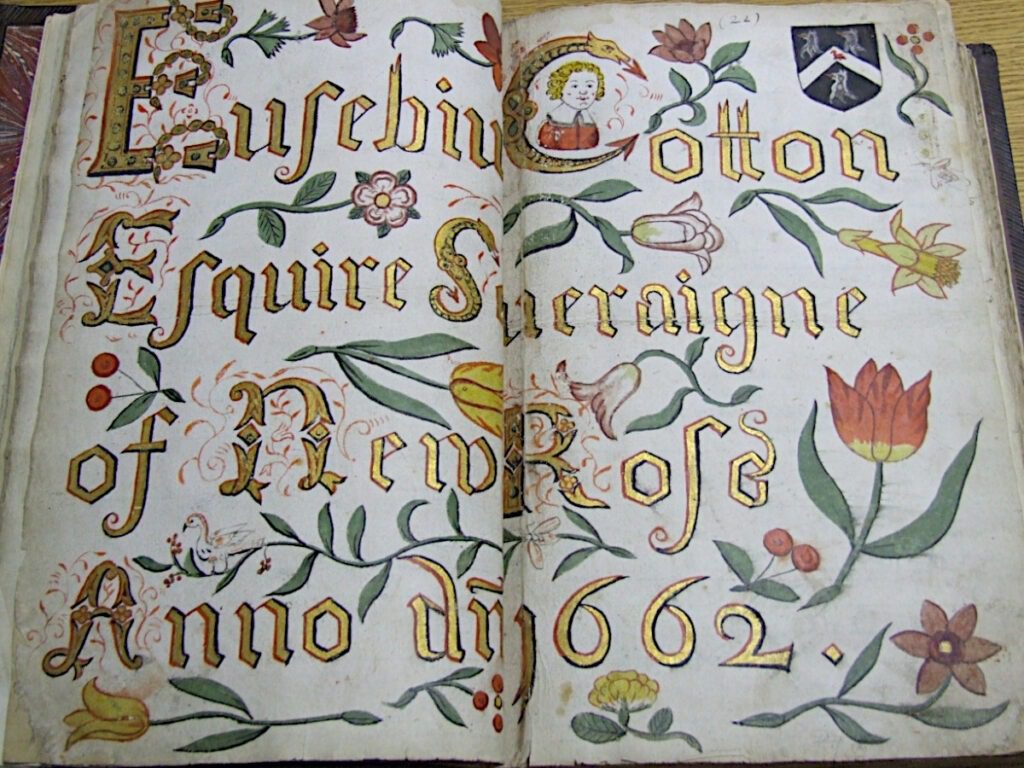 (22)
Euſebius Cotton
Eſquire Soueraigne
of New Roſs
Anno dñi 1662.